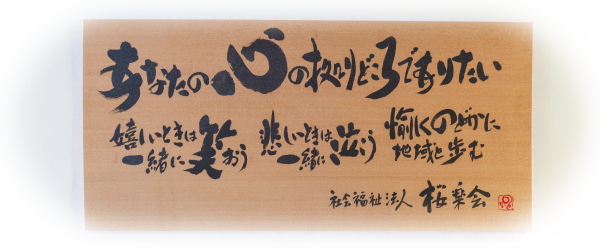 あなたの心の拠りどころでありたい
嬉しいときは
一緒に笑おう
悲しいときは
一緒に泣こう
愉しくのどかに
地域と歩む
社会福祉法人 桜樂会